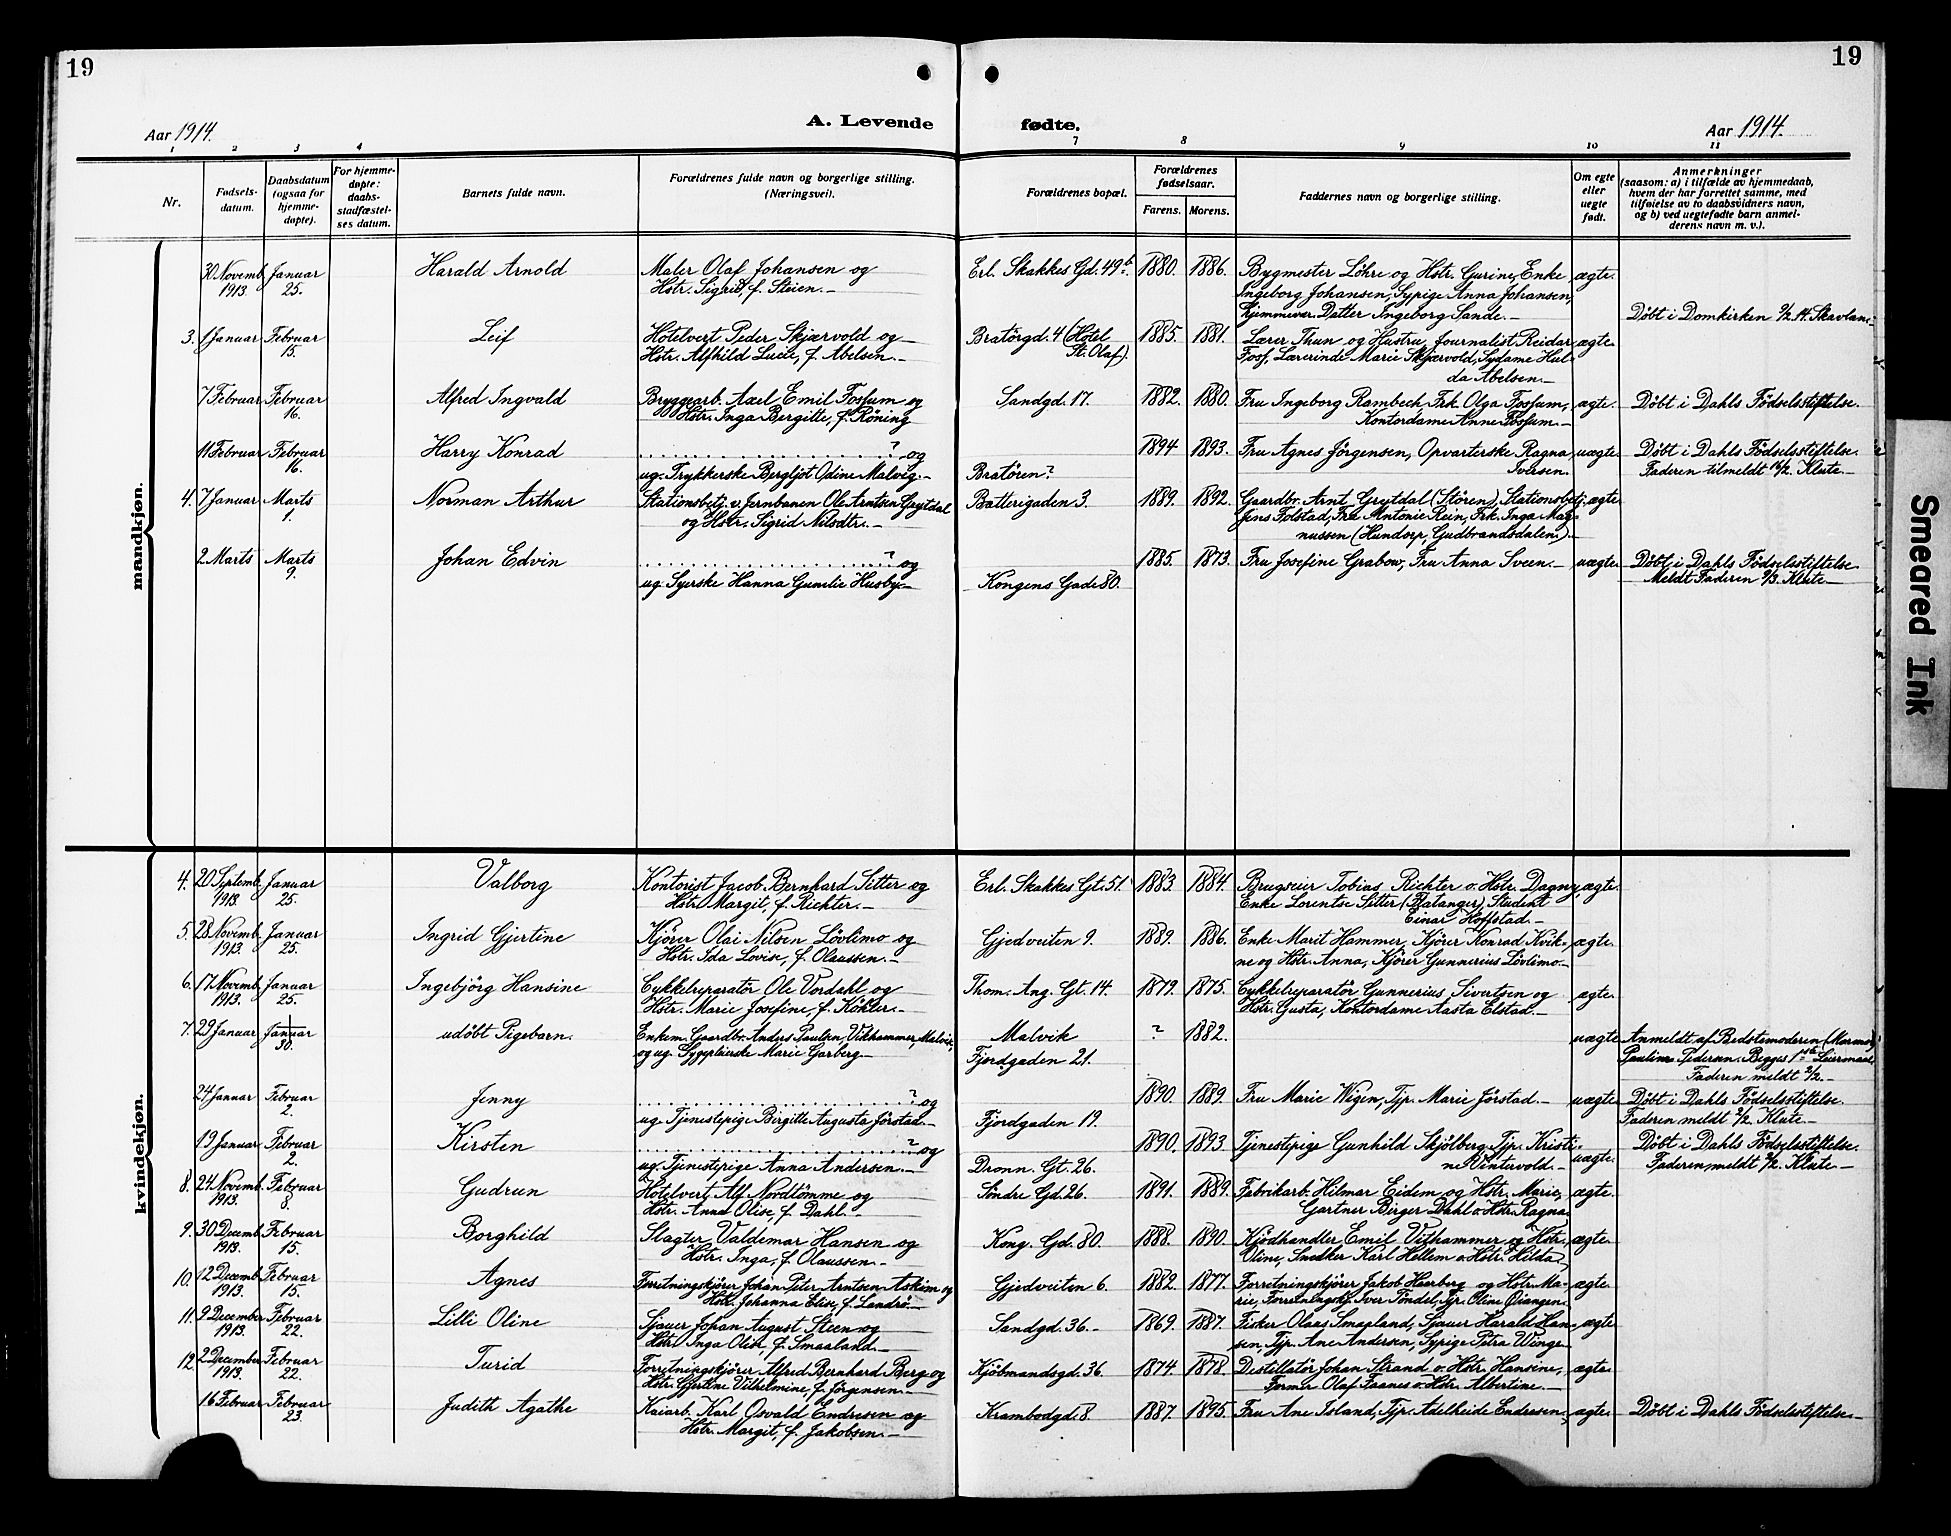 19
19
Aar 1914.
A. Levende
fødte.
Aar 1914.
1 2 3 4
7 8 9 10 11
Nr.
Fødsels-
datum.
Daabsdatum
(ogsaa for
hjemme-
døpte).
For hjemme-
døpte:
daabs-
stadfæstel-
ses datum.
Barnets fulde navn.
Forældrenes fulde navn og borgerlige stilling.
(Næringsvei).
Forældrenes bopæl.
Forældrenes
fødselsaar.
Farens. Morens.
Faddernes navn og borgerlige stilling.
Om egte
eller
uegte
født.
Anmerkninger
(saasom: a) i tilfælde av hjemmedaab,
hvem der har forrettet samme, med
tilføielse av to daabsvidners navn,
og b) ved uegtefødte barn anmel-
derens navn m. v.).
mandkjøn.
30 Novemb. Januar Harald Arnold Maler Olaf Johansen og Erl. Skakkes Gd. 49b. 1880. 1886. Bygmester Løhre og Hstr. Gurine, Enke ægte.
1913. 25. Hstr. Sigrid, f. Steien. Ingeborg Johansen, Sypige Anna Johansen,
Hjemmevær. Datter Ingeborg Sande. Døbt i Domkirken 2/2 14. Skavlan.
3. 1 Januar Februar Leif Hotelvert Peder Skjærvold og Bratörgd. 4 (Hotel 1885. 1881. Lærer Thun og Hustru, Journalist Reidar ægte.
15. Hstr. Alfhild Lucie, f. Abelsen. St. Olaf). Fosf, Lærerinde Marie Skjærvold, Sydame Hul-
da Abelsen.
7 Februar Februar Alfred Ingvald Bryggearb. Axel Emil Fossum og Sandgd. 17. 1882. 1880. Fru Ingeborg Rambech, Frk. Olga Fossum, ægte. Døbt i Dahls Födselsstiftelse.
16. Hstr. Inga Bergitte, f. Röning Kontordame Anne Fossum.
11 Februar Februar Harry Konrad ? og 1894 1893. Fru Agnes Jörgensen, Opvarterske Ragna uægte. Døbt i Dahls Födselsstiftelse.
16. ug. Trykkerske Bergljot Odine Malvig. Bratören? Iversen. Faderen tilmeldt 16/2. Klute.
4. 7 Januar Marts Norman Arthur Stationsbetj. v. Jernbanen Ole Arntsen Grytdal Batterigaden 3. 1889. 1892. Gaardbr. Arnt Grytdal (Stören), Stationsbetj. ægte.
1. og Hstr. Sigrid Nilsdtr. Jens Folstad, Fru Antonie Rein, Frk. Inga Mag-
nussen (Hundorp, Gudbrandsdalen.).
2 Marts Marts Johan Edvin ? og 1885. 1873. Fru Josefine Grabow, Fru Anna Sveen. uægte. Døbt i Dahls Födselsstiftelse
9. ug. Syerske Hanna Gunelie Husby. Kongens Gade 80. Meldt Faderen 9/3. Klute
kvindekjøn.
4. 20 Septemb. Januar Valborg Kontorist Jacob Bernhard Sitter og Erl. Skakkes Gt. 51. 1883. 1884. Brugseier Tobias Richter o. Hstr. Dagny, ægte.
1913. 25. Hstr. Margit, f. Richter. Enke Lorentse Sitter (Batanger), Student
Einar Hoffstad.
5. 28 Novemb. Januar Ingrid Gjertine Kjörer Olai Nilsen Lövlimo og Gjedveiten 9. 1889. 1886. Enke Marit Hammer, Kjörer Konrad Kvik- ægte.
1913. 25. Hstr. Ida Lovise, f. Olaussen. ne og Hstr. Anna, Kjörer Gunnerius Lövlimo.
6. 17 Novemb. Januar Ingebjörg Hansine Cykkelreparatör Ole Vordahl og Thom. Ang. Gt. 14. 1879. 1875. Cykkelreparatör Gunnerius Sivertsen og ægte.
1913. 25. Hstr. Marie Josefine, f. Köhler. Hstr. Gusta, Kontordame Aasta Elstad.
7. 29 Januar Januar udøbt Pigebarn. Enkem. Gaardbr. Anders Paulsen, Vikhammer, Malvik, Malvik ? 1882. uægte Anmeldt af Bedstemoderen (Mormor)
30. og ug. Sygepleierske Marie Garberg. Fjordgaden 21. Pauline Pedersen. Begges 1ste Leiermaal.
Faderen meldt 2/2.
24 Januar Februar Jenny ? og 1890. 1889. Fru Marie Wigen, Tjp. Marie Jörstad. uægte Døbt i Dahls Födselsstiftelse.
2. ug. Tjenestepige Birgitte Augusta Jörstad. Fjordgaden 19. Faderen meldt 2/2. Klute.
19 Januar Februar Kirsten ? og 1890. 1893. Tjenestepige Gunhild Skjölberg, Tjp. Kristi- uægte. Døbt i Dahls Födselsstiftelse.
2. ug. Tjenestepige Anna Andersen. Dronn. Gt. 26. ne Vintervold. Faderen meldt 2/2. Klute
8. 24 Novemb. Februar Gudrun Hotelvert Alf Nordtömme og Söndre Gd. 26. 1891. 1889. Fabrikarb. Hilmar Eidem og Hstr. Marie, ægte.
1913. 8. Hstr. Anna Olise, f. Dahl. Gartner Birger Dahl o. Hstr. Ragna.
9. 30 Decemb. Februar Borghild Slagter Valdemar Hansen og Kong. Gd. 80. 1888. 1890. Kjödhandler Emil Vikhammer og Hstr. ægte.
1913. 15. Hstr. Inga, f. Olaussen. Oline, Snedker Karl Hellem o. Hstr. Hilda,
10. 12 Decemb. Februar Agnes Forretningskjörer Johan Peter Arntsen Askim og Gjedveiten 6. 1882. 1877. Forretningskjörer Jakob Haarberg og Hstr. Ma- ægte.
1913. 15. Hstr. Johanna Elise, f. Landrö. rie, Forretningskj. Iver Töndel, Tjp. Oline Öiangen.
11. 9 December Februar Lilli Oline Sjauer Johan August Steen og Sandgd. 36. 1869. 1887. Fisker Olaus Smaaland, Sjauer Harald Han- ægte
1913. 22. Hstr. Inga Olise, f. Smaaland. sen, Tjp. Ane Andersen, Sypige Petra Winge.
12. 2 December Februar Turid Forretningskjörer Alfred Bernhard Berg og Kjöbmandsgd. 36. 1874. 1878. Destillatör Johan Strand o. Hstr. Hansine, ægte.
1913. 22. Hstr. Gjertine Vilhelmine, f. Jörgensen. Former Olaf Faanes o. Hstr. Albertine.
16 Februar Februar Judith Agathe Kaiarb. Karl Osvald Endresen og Krambodgd. 8. 1887. 1895. Fru Ane Island, Tjp. Adelheide Endresen, ægte. Døbt i Dahls Födselsstiftelse.
23. Hstr. Margit, f. Jakobsen.
Smeared Ink